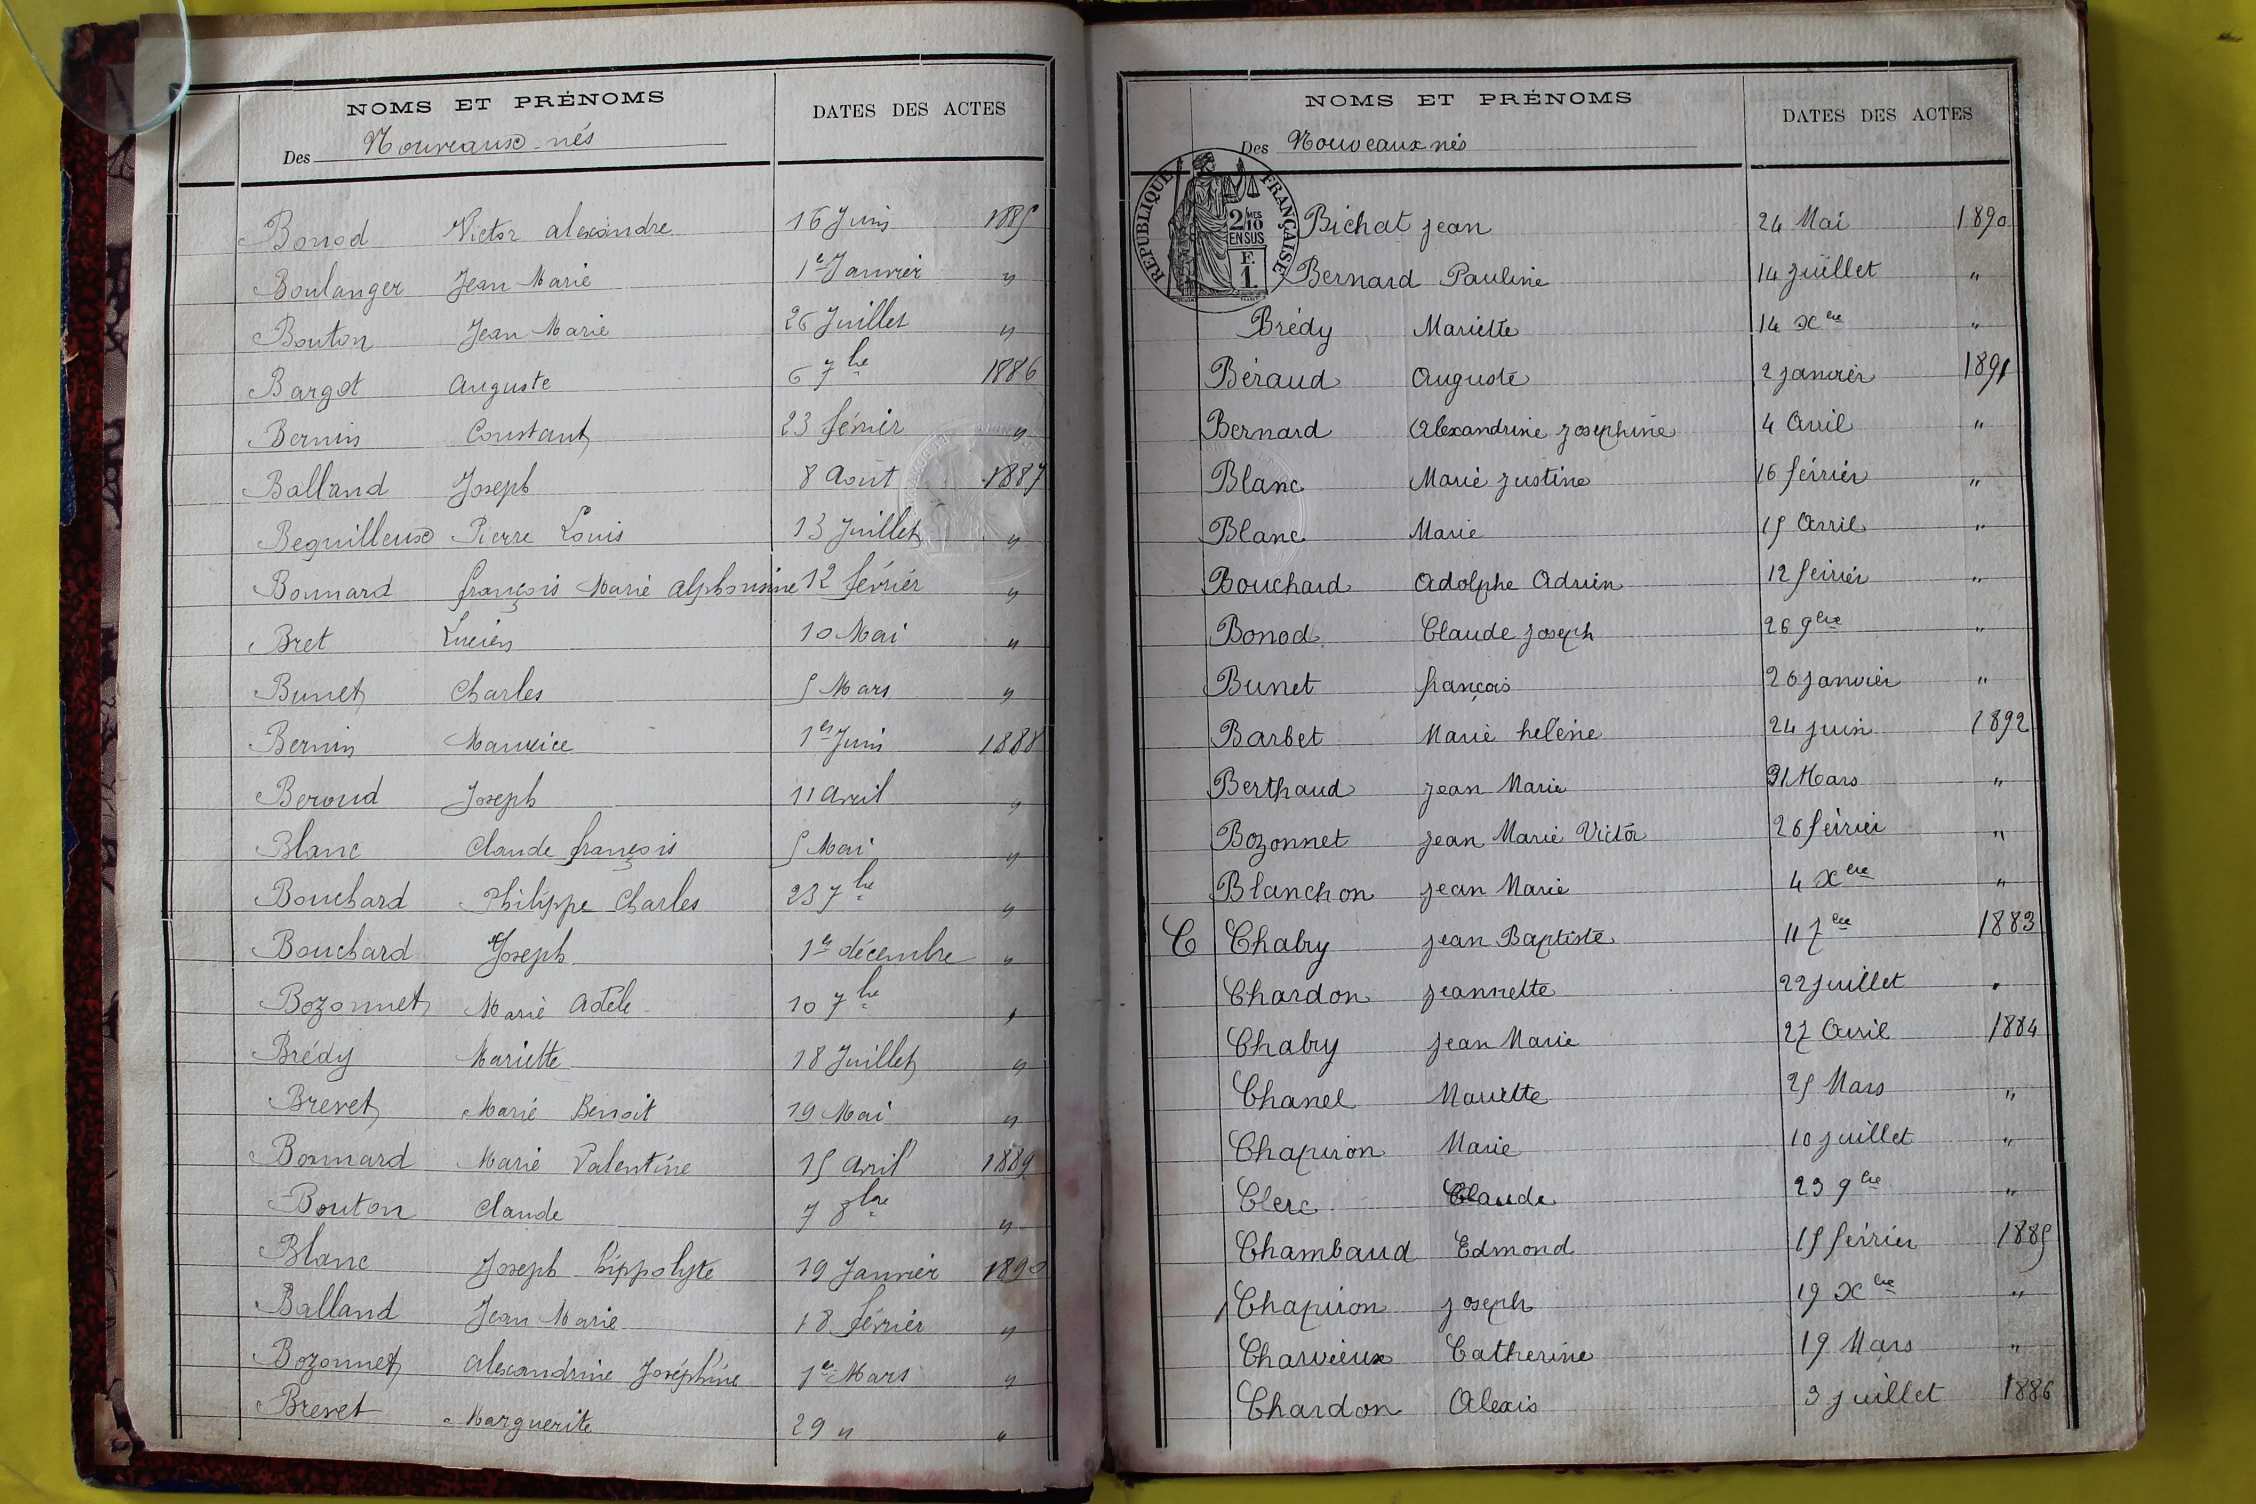 NOMS ET PRÉNOMS DATES DES ACTES
Des Nouveaux-nés
Bonod Victor alexandre 16 Juin 1885
Boulanger Jean Marie 1er Janvier "
Bouton Jean Marie 26 Juillet "
Bargot auguste 6 7bre 1886
Bernin Constant 23 février "
Balland Joseph 8 Août 1887
Beguilleux Pierre Louis 13 Juillet "
Bonnard françois Marie alphonsine 12 février "
Bret Lucien 10 Mai "
Bunet Charles 5 Mars "
Bernin Maurice 1er Juin 1888
Beroud Joseph 11 avril "
Blanc Claude françois 5 Mai "
Bouchard Philippe Charles 23 7bre "
Bouchard Joseph 1er décembre "
Bozonnet Marie adèle 10 7bre "
Brédy Mariette 18 Juillet "
Brevet Marie Benoit 19 Mai "
Bonnard Marie Valentine 15 avril 1889
Bouton Claude 7 8bre "
Blanc Joseph hippolyte 19 Janvier 1890
Balland Jean Marie 18 février "
Bozonnet alexandrine Joséphine 1er Mars "
Brevet Marguerite 29 " "
NOMS ET PRÉNOMS DATES DES ACTES
Des Nouveaux nés
RÉPUBLIQUE FRANÇAISE
2/10MES
EN SUS
F.
1.
Bichat jean 24 Mai 1890
Bernard Pauline 14 juillet "
Brédy Mariette 14 Xbre "
Béraud auguste 2 janvier 1891
Bernard Alexandrine josephine 4 Avril "
Blanc Marie justine 16 février "
Blanc Marie 15 Avril "
Bouchard Adolphe Adrien 12 février "
Bonod Claude joseph 26 9bre "
Bunet françois 26 janvier "
Barbet Marie hélène 24 juin 1892
Berthaud jean Marie 31 Mars "
Bozonnet jean Marie Victor 26 février "
Blanchon jean Marie 4 Xbre "
C Chabry jean Baptiste 11 7bre 1883
Chardon jeannette 22 juillet "
Chabry jean Marie 27 Avril 1884
Chanel Mariette 25 Mars "
Chapiron Marie 10 juillet "
Clerc Claude 23 9bre "
Chambaud Edmond 15 février 1885
Chapiron joseph 19 Xbre "
Charvieux Catherine 19 Mars "
Chardon Alexis 3 juillet 1886